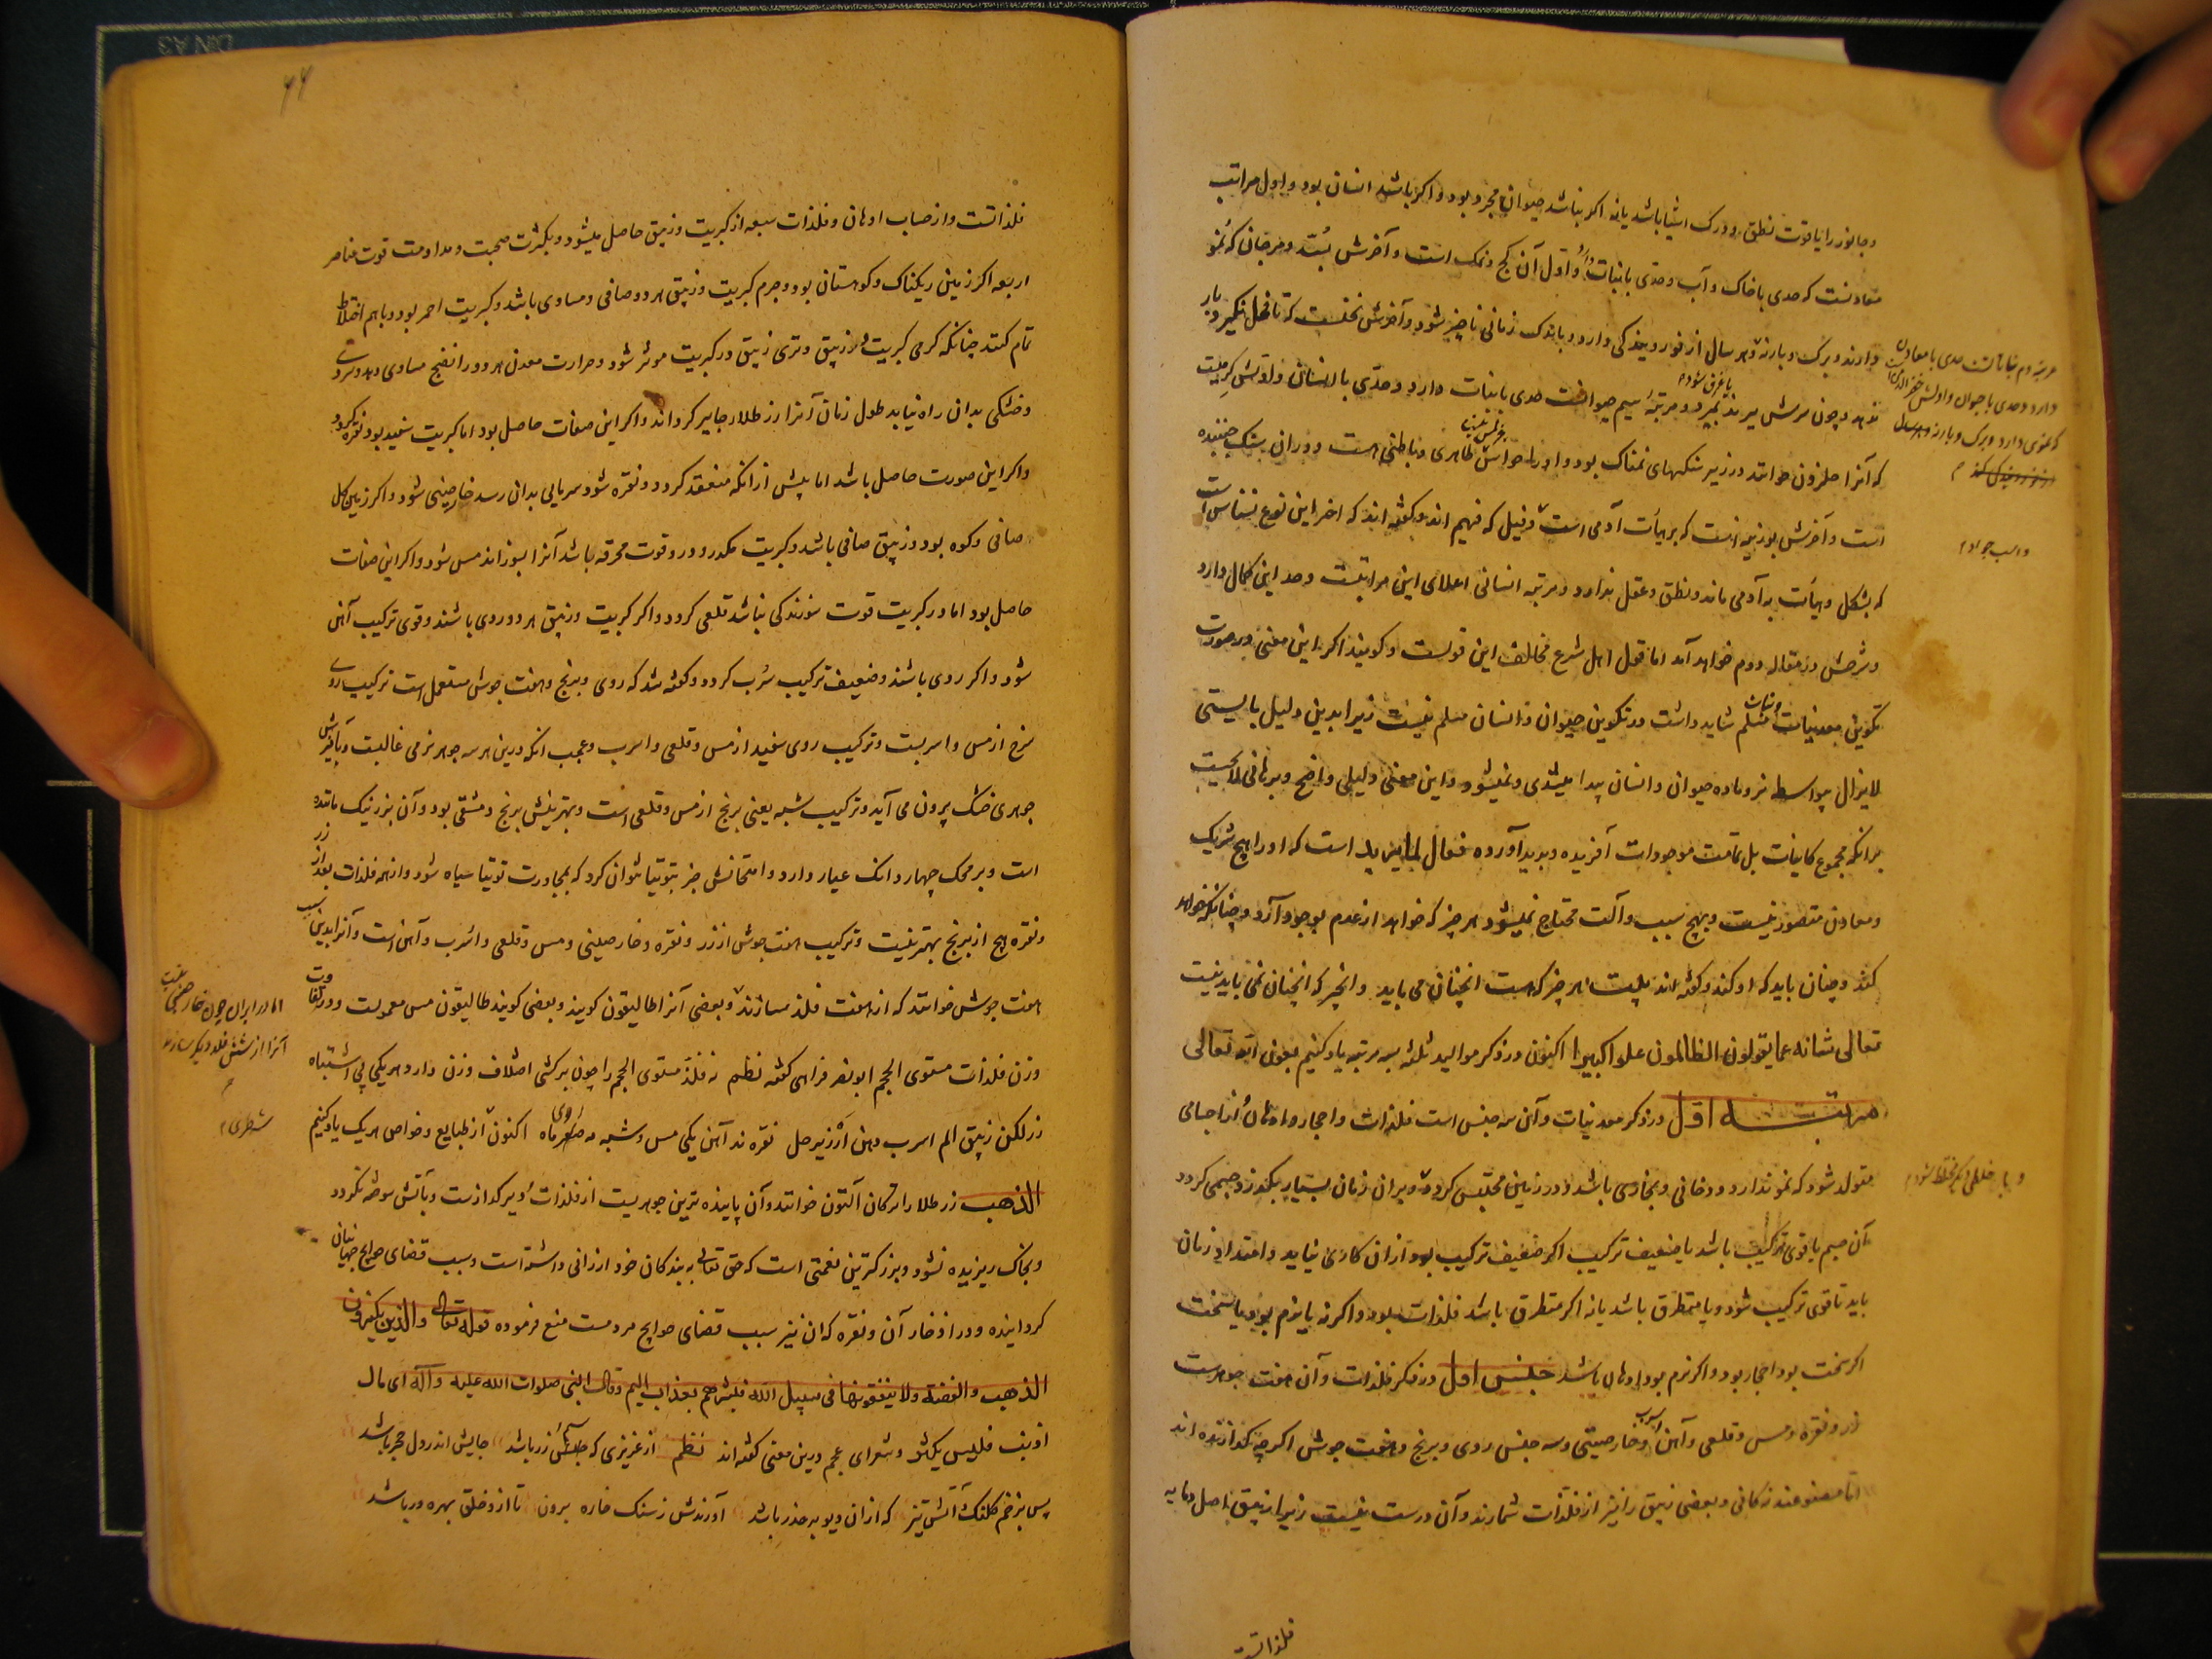 و جانور را یا قوت نطق و درک اشیا باشد یا نه اگر نباشد حیوان مجرد بود و اگر باشد انسان بود و اول مراتب
معادنست که حدی با خاک و آب و حدی با نبات دارد و اول آن گچ و نمک است و آخرش بُسّد و مرجان که نمو
دارند و برک و بار نه و هر سال از نو روینده کی دارد و باندک زمانی ناچیز شود و آخرش نخلست که تا فحل نگیرد بار
ندهد و چون سرش ببرند بمیرد و مرتبهٔ سیم حیوانست حدی با نبات دارد و حدی با انسان و اولش کرمیست
که آنرا حلزون خوانند در زیر سنکهای نمناک بود و او را حواس ظاهری و باطنی هست و در آن سنک جنبنده
است و آخرش بوزینه است که بر هیأت آدمی است و فیل که فهیم اند و گفته اند که آخر این نوع نسناس است
که بشکل و هیأت به آدمی ماند و نطق و عقل ندارد و مرتبه انسانی اعلای این مراتبست و حد این کمال دارد
و شرحش در مقاله دوم خواهد آمد اما قول اهل شرع مخالف این قولست و کویند اکر این معنی در صورت
تکوین معدنیات و نبات مسلم شاید داشت در تکوین حیوان و انسان مسلم نیست زیرا بدین دلیل بایستی
لایزال بواسطه نر و ماده حیوان و انسان پیدا میشدی و نمیشود و این معنی دلیلی واضح و برهانی لایحست
برانکه مجموع کاینات بل تمامت موجودات آفریده و پدید آورده فعال لما یرید است که او را هیچ شریک
و معاون متصور نیست و بهیچ سبب و آلت محتاج نمیشود هر چیز که خواهد از عدم بوجود آرد و چنانکه خواهد
کند و چنان باید که او کند و گفته اند بیت هر چیز که هست آنچنان می باید و انچیز که آنچنان نمی باید نیست
تعالی شانه عما یقولون الظالمون علوا کبیرا اکنون در ذکر موالید ثلثه بسه مرتبه یاد کنیم بعون الله تعالی
مرتبه اول در ذکر معدنیات و آن سه جنس است فلذات و احجار و ادهان از اجسامی
متولد شود که نمو ندارد و دخانی و بخاری باشد و در زمین محتبس کردد و بر آن زمان بسیار بگذرد و جسمی کردد
آن جسم یا قوی ترکیب باشد یا ضعیف ترکیب اکر ضعیف ترکیب بود از آن کاری نیاید و امتداد زمان
باید تا قوی ترکیب شود و یا متطرق باشد یا نه اکر متطرق باشد فلذات بود و اکر نه یا نرم بود یا سخت
اکر سخت بود احجار بود و اکر نرم بود ادهان باشد جنس اول در ذکر فلذات و آن هفت جوهرست
زر و نقره و مس و قلعی و آهن و اسرب و خارصینی و سه جنس روی و برنج و هفت جوش اکرچه گدازنده اند
اما مصنوعند نه کانی و بعضی زیبق را نیز از فلذات شمارند و آن درست نیست زیرا زیبق اصل و مایه
فلذاتست
مرتبه دوم نباتات حدی با معادن
دارد و حدی با حیوان و اولش خضر الدمن
که نموی دارد و برک و بار نه و هر سال
از نو روینده کی کند
واسب جوادم
و با خلطی دیگر مختلط شود
۶۶
فلذاتست و از حساب ادهان و فلذات سبعه از کبریت و زیبق حاصل میشود و بکثرت صحبت و مداومت قوت عناصر
اربعه اکر زمین ریکناک و کوهستان بود و جرم کبریت و زیبق هر دو صافی و مساوی باشد و کبریت احمر بود و با هم اختلاط
تمام کنند چنانکه کرمی کبریت در زیبق و تری زیبق در کبریت موثر شود و حرارت معدن هر دو را نضج مساوی دهد و سردی
و خشکی بدان راه نیابد طول زمان آنرا زر طلا رجایر کرداند و اکر این صفات حاصل بود اما کبریت سفید بود نقره کردد
و اکر این صورت حاصل باشد اما پیش از آنکه منعقد کردد و نقره شود سرمایی بدان رسد خارصینی شود و اکر زمین کل
صافی و کوه بود و زیبق صافی باشد و کبریت مکدر و در و قوت محرقه باشد آنرا بسوزاند مس شود و اکر این صفات
حاصل بود اما در کبریت قوت سوزندگی نباشد قلعی کردد و اکر کبریت و زیبق هر دو ردی باشند و قوی ترکیب آهن
شود و اکر ردی باشند و ضعیف ترکیب سُرب کردد و گفته شد که روی و برنج و هفت جوش مستعمل است ترکیب روی
سرخ از مس و اسربست و ترکیب روی سفید از مس و قلعی و اسرب و عجب آنکه درین هر سه جوهر نرمی غالبست و باآخرش
جوهری خشک برون می آید و ترکیب شبه یعنی برنج از مس و قلعی است و بهترینش برنج دمشقی بود و آن بزر نیک ماننده
است و بر محک چهار دانک عیار دارد و امتحانش جز بتوتیا نتوان کرد که بمجاورت توتیا سیاه شود و از همه فلذات بعد از زر
و نقره هیچ از برنج بهتر نیست و ترکیب هفت جوش از زر و نقره و خارصینی و مس و قلعی و اسرب و آهن است و آنرا بدین سبب
هفت جوش خوانند که از هفت فلذ سازند و بعضی آنرا طالیقون کویند و بعضی کویند طالیقون مس معمولست و در تفاوت
وزن فلذات مستوی الحجم ابونصر فراهی گفته نظم نه فلذ مستوی الحجم را چون برکشی اختلاف وزن دارد هر یکی بی اشتباه
زر لکن زیبق الم اسرب دهن ارزیز حل نقره ند آهن یکی مس و شبه مه صفر ماه اکنون از طبایع و خواص هر یک یاد کنیم
الذهب زر طلا را ترکان آلتون خوانند و آن پاینده ترین جوهریست از فلذات و دیرگدازست و بآتش سوخته نکردد
و بخاک ریزیده نشود و بزرکترین نعمتی است که حق تعالی به بندکان خود ارزانی داشته است و سبب قضای حوایج جهانیان
کردانیده و در ادخار آن و نقره که آن نیز سبب قضای حوایج مردمست منع فرموده قوله تعالی والذین یکنزون
الذهب والفضة ولا ینفقونها فی سبیل الله فبشرهم بعذاب الیم وقال النبی صلوات الله علیه وآله ای مال
ادیت فلیس یکنز و شعرای عجم درین معنی گفته اند نظم از عزیزی که زر باشد جایش اندر دل حجر باشد
پس بزخم کلنک و آتش تیز که از آن دیو به حذر باشد آورندش ز سنک خاره برون تا از و خلق بهره ور باشد
اما در ایران چون خارصینی نیست
آنرا از شش فلذ دیگر سازند